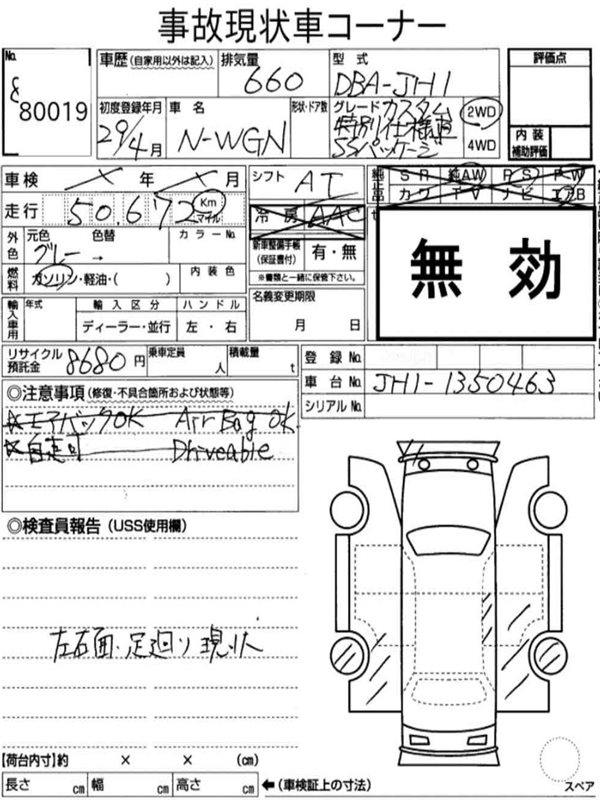 事故現状車コーナー
No. 80019
車歴(自家用以外は記入)
排気量 660
型式 DBA-JH1
評価点
初度登録年月 29/4月
車名 N-WGN
形状・ドア数
グレード カスタム
特別仕様車
SSパッケージ
2WD
4WD
内装補助評価
車検 年 月
シフト AT
純正品 SR 純AW PS PW
カワ TV ナビ エアB
走行 50,672 Km マイル
冷房 AAC
外色 元色 色替 グレー →
カラーNo.
新車整備手帳(保証書付) 有・無
※書類と一緒に保管下さい。
無効
燃料 ガソリン・軽油・( )
内装色
輸入車用 年式 輸入区分 ハンドル
ディーラー・並行 左・右
名義変更期限
月 日
リサイクル預託金 8680円
乗車定員 人
積載量 t
登録No.
車台No. JH1-1350463
シリアルNo.
◎注意事項(修復・不具合箇所および状態等)
エアバックOK Air Bag OK
自走可 Driveable
◎検査員報告(USS使用欄)
左右面・足廻り現状
【荷台内寸】約 × × (cm)
長さ cm 幅 cm 高さ cm ←(車検証上の寸法)
スペア